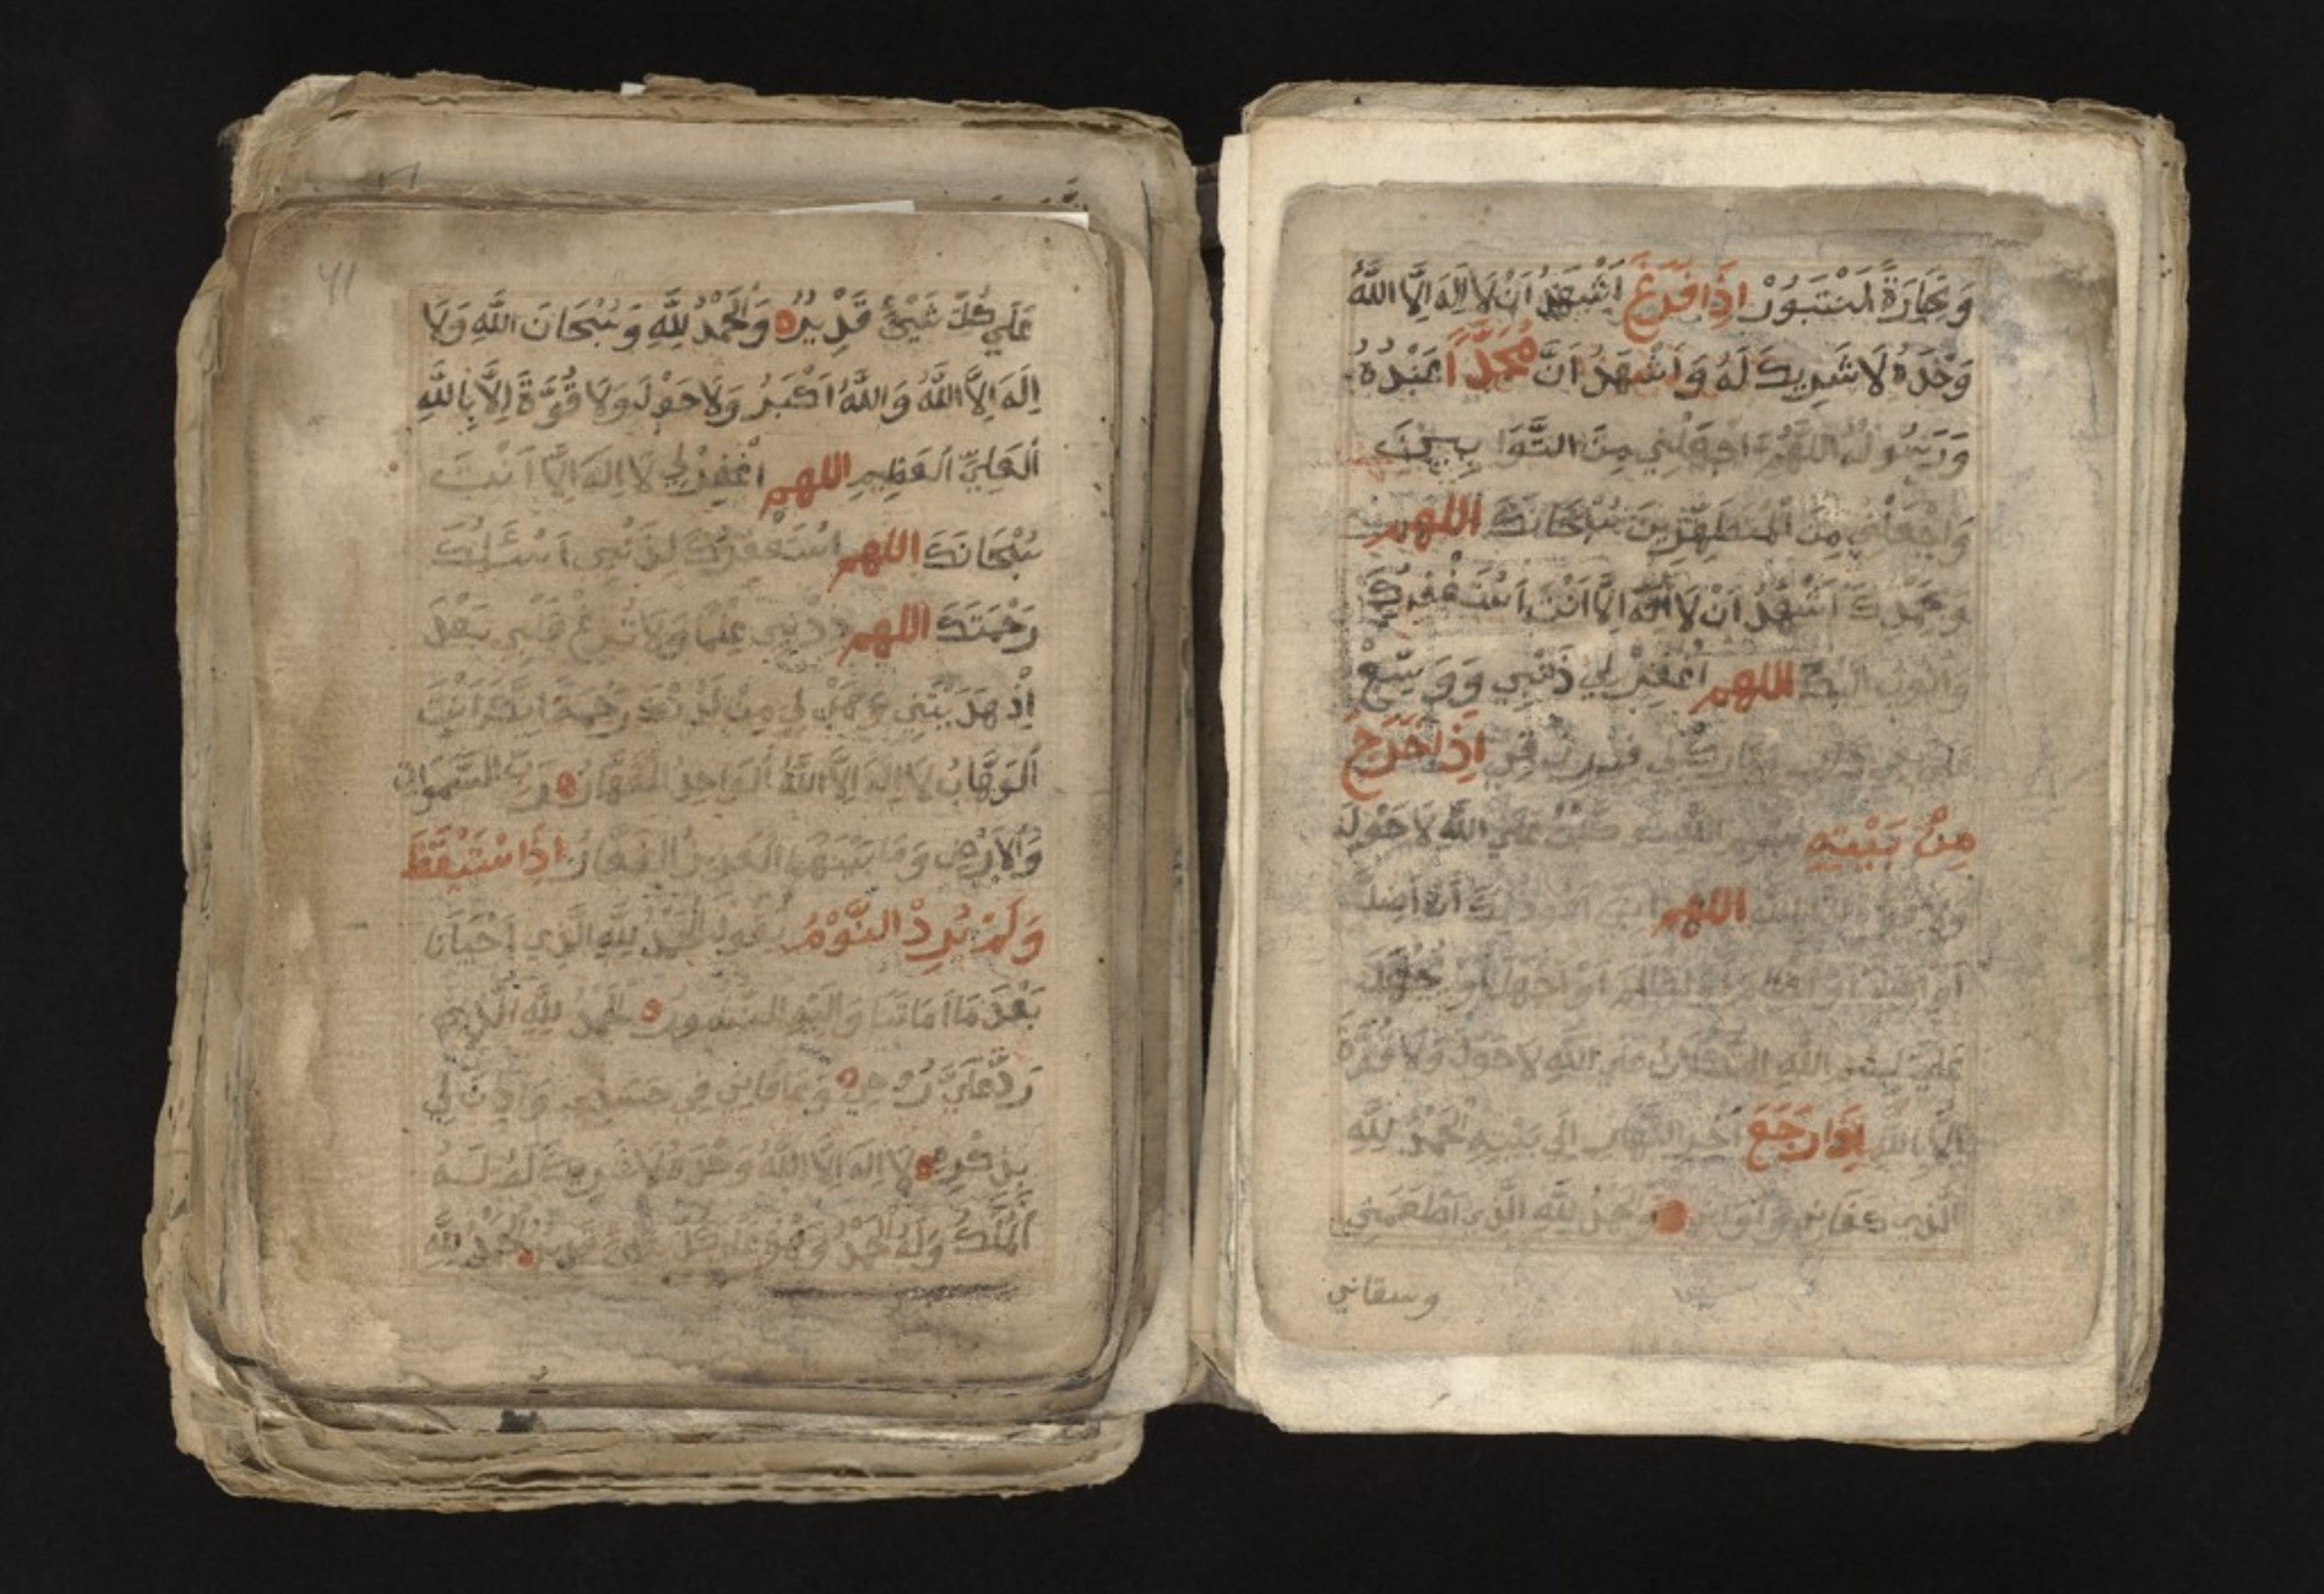 وَتِجَارَةً لَنْ تَبُورْ اِذَا فَرَغَ اَشْهَدُ اَنْ لَا اِلَهَ اِلَّا اللَّهُ
وَحْدَهُ لَا شَرِيكَ لَهُ وَاَشْهَدُ اَنَّ مُحَمَّدًا عَبْدُهُ
وَرَسُولُهُ اللَّهُمَّ اجْعَلْنِي مِنَ التَّوَابِينَ
وَاجْعَلْنِي مِنَ الْمُتَطَهِّرِينَ سُبْحَانَكَ اللهم
وَبِحَمْدِكَ اَشْهَدُ اَنْ لَا اِلَهَ اِلَّا اَنْتَ اَسْتَغْفِرُكَ
وَاَتُوبُ اِلَيْكَ اللهم اغْفِرْ لِي ذَنْبِي وَوَسِّعْ
لِي فِي اِذَا خَرَجَ
مِنْ بَيْتِهِ تَوَكَّلْتُ عَلَي اللَّهِ لَا حَوْلَ
وَلَا اللهم اَنْ اَضِلَّ
اَوْ اَوْ اَجْهَلَ اَوْ يُجْهَلَ
عَلَيَّ بِسْمِ اللَّهِ التُّكْلَانُ عَلَي اللَّهِ لَا حَوْلَ وَلَا قُوَّةَ
اِلَّا بِاللَّهِ اِذَا رَجَعَ اَخِرَ النَّهَارِ اِلَي بَيْتِهِ الْحَمْدُ لِلَّهِ
الَّذِي كَفَانِي وَآوَانِي وَالْحَمْدُ لِلَّهِ الَّذِي اَطْعَمَنِي
وسقاني
٤١
عَلَي كُلِّ شَيْئٍ قَدِيرٌ وَالْحَمْدُ لِلَّهِ وَسُبْحَانَ اللَّهِ وَلَا
اِلَهَ اِلَّا اللَّهُ وَاللَّهُ اَكْبَرُ وَلَا حَوْلَ وَلَا قُوَّةَ اِلَّا بِاللَّهِ
الْعَلِيِّ الْعَظِيمِ اللهم اغْفِرْ لِي لَا اِلَهَ اِلَّا اَنْتَ
سُبْحَانَكَ اللهم اَسْتَغْفِرُكَ لِذَنْبِي اَسْئَلُكَ
رَحْمَتَكَ اللهم زِدْنِي عِلْمًا وَلَا تُزِغْ قَلْبِي بَعْدَ
اِذْ هَدَيْتَنِي وَهَبْ لِي مِنْ لَدُنْكَ رَحْمَةً اِنَّكَ اَنْتَ
الْوَهَّابُ لَا اِلَهَ اِلَّا اللَّهُ الْوَاحِدُ الْقَهَّارُ رَبُّ السَّمَوَاتِ
وَالْاَرْضِ وَمَا بَيْنَهُمَا الْعَزِيزُ الْغَفَّارُ اِذَا اسْتَيْقَظَ
وَلَمْ يُرِدْ النَّوْمَ يَقُولُ الْحَمْدُ لِلَّهِ الَّذِي اَحْيَانَا
بَعْدَ مَا اَمَاتَنَا وَاِلَيْهِ النُّشُورُ الْحَمْدُ لِلَّهِ الَّذِي
رَدَّ عَلَيَّ رُوحِي وَعَافَانِي فِي جَسَدِي وَاَذِنَ لِي
بِذِكْرِهِ لَا اِلَهَ اِلَّا اللَّهُ وَحْدَهُ لَا شَرِيكَ لَهُ لَهُ
الْمُلْكُ وَلَهُ الْحَمْدُ وَهُوَ عَلَي كُلِّ شَيْئٍ قَدِيرٌ الْحَمْدُ لِلَّهِ